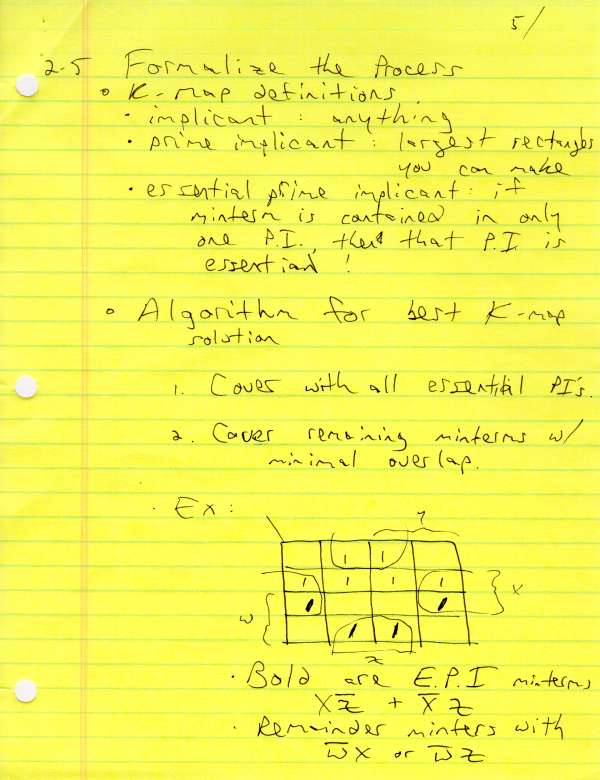 5/
2-5 Formalize the Process
• K-map definitions
• implicant : anything
• prime implicant : largest rectangles
you can make
• essential prime implicant : if
minterm is contained in only
one P.I., then that P.I. is
essential !
• Algorithm for best K-map
solution
1. Cover with all essential PI's.
2. Cover remaining minterms w/
minimal overlap.
• Ex:
y
1 1
1 1 1 1
1 1
x
w
1 1
z
• Bold are E.P.I minterms
XZ̅ + X̅Z
• Remainder minters with
W̅X or W̅Z